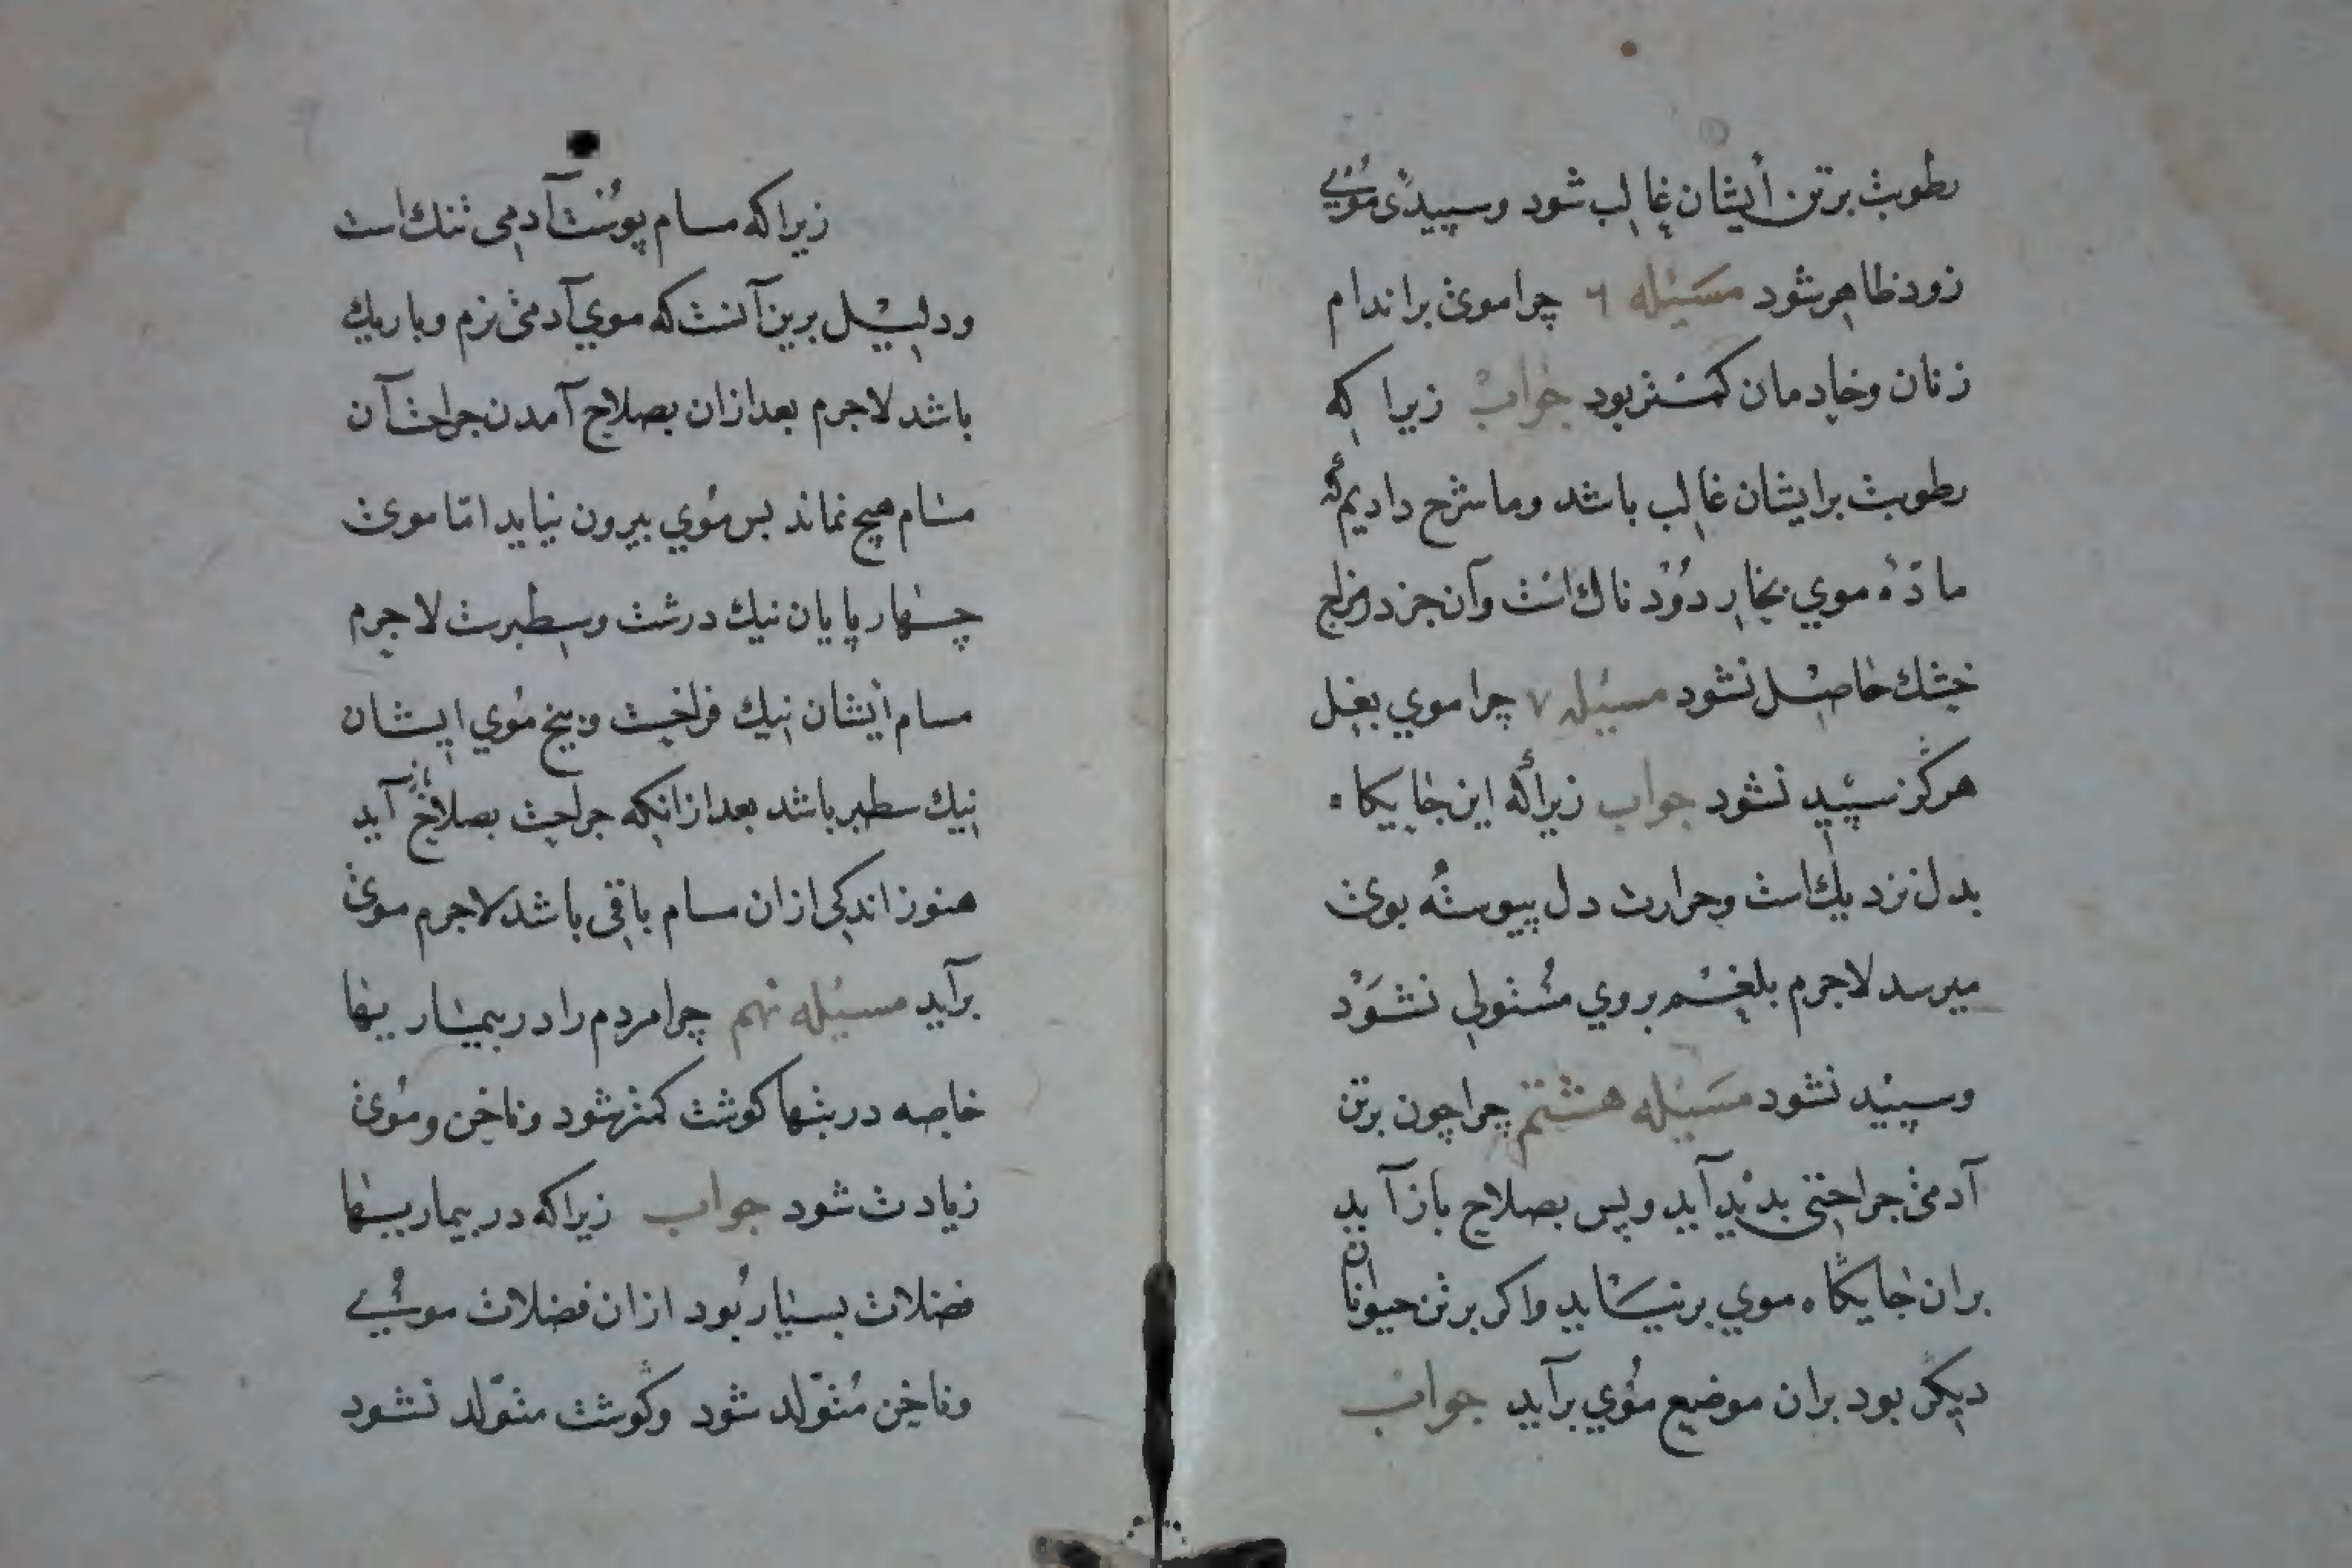 رطوبت بر تن ایشان غالب شود وسپیدی موی
زود ظاهر شود مسئله ۶ چرا موی بر اندام
زنان وخادمان کمتر بود جواب زیرا که
رطوبت بر ایشان غالب باشد وما شرح دادیم که
مادّهٔ موي بخار دود ناك است وآن جز در مزاج
خشك حاصل نشود مسئله ۷ چرا موي بغل
هرکز سپید نشود جواب زیراکه این جایکاه
بدل نزدیك است وحرارت دل پیوسته بوی
میرسد لاجرم بلغم بروي مستولي نشود
وسپید نشود مسئله هشتم چرا چون بر تن
آدمی جراحتی بدید آید وپس بصلاح باز آید
بران جایکاه موي بر نیاید واکر بر تن حیوانات
دیکر بود بران موضع موي برآید جواب
زیرا که مسام پوست آدمی تنك است
ودلیل برین آنست که موي آدمی نرم وباریك
باشد لاجرم بعد ازان بصلاح آمدن جراحت آن
مسام هیچ نماند بس موي بیرون نیاید امّا موی
چهارپایان نیك درشت وسطبرست لاجرم
مسام ایشان نیك فراخست وبیخ موي ایشان
نیك سطبر باشد بعد ازانکه جراحت بصلاح باز آید
هنوز اندکی ازان مسام باقی باشد لاجرم موی
برآید مسئله نهم چرا مردم را در بیماریها
خاصه در تبها کوشت کمتر شود وناخن وموی
زیادت شود جواب زیرا که در بیماریها
فضلات بسیار بود ازان فضلات موی
وناخن متولّد شود وکوشت متولّد نشود